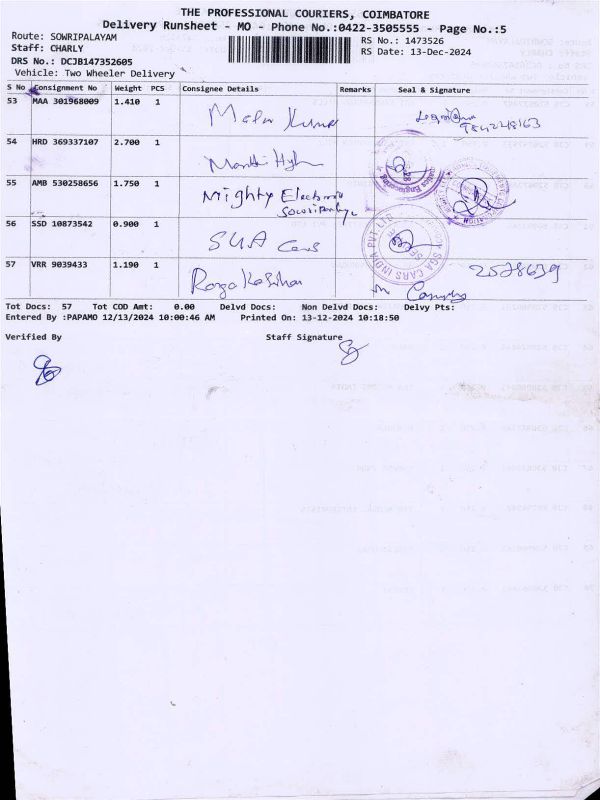 THE PROFESSIONAL COURIERS, COIMBATORE
Delivery Runsheet - MO - Phone No.:0422-3505555 - Page No.:5
Route: SOWRIPALAYAM
RS No.: 1473526
Staff: CHARLY
RS Date: 13-Dec-2024
DRS No.: DCJB147352605
Vehicle: Two Wheeler Delivery
S No Consignment No Weight PCS Consignee Details Remarks Seal & Signature
53 MAA 301968009 1.410 1 Kumar
54 HRD 369337107 2.700 1
55 AMB 530258656 1.750 1 Mighty
56 SSD 10873542 0.900 1 SGA Cars
SGA CARS INDIA PVT LTD
57 VRR 9039433 1.190 1 2578639
Tot Docs: 57 Tot COD Amt: 0.00 Delvd Docs: Non Delvd Docs: Delvy Pts:
Entered By :PAPAMO 12/13/2024 10:00:46 AM Printed On: 13-12-2024 10:18:50
Verified By Staff Signature